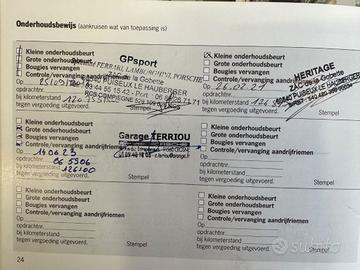 Onderhoudsbewijs (aankruisen wat van toepassing is)
Kleine onderhoudsbeurt
Grote onderhoudsbeurt
Bougies vervangen
Controle/vervanging aandrijfriemen
opdrachtnr.
bij kilometerstand
tegen vergoeding uitgevoerd.
Stempel
GPsport
FERRARI, LAMBORGHINI, PORSCHE
PUISEUX LE HAUBERGER
RCS COMPIEGNE
Kleine onderhoudsbeurt
Grote onderhoudsbeurt
Bougies vervangen
Controle/vervanging aandrijfriemen
Op
26.02.21
opdrachtnr.
bij kilometerstand
tegen vergoeding uitgevoerd.
Stempel
HERITAGE
ZAC de la Gobette
PUISEUX LE HAUBERGER
Kleine onderhoudsbeurt
Grote onderhoudsbeurt
Bougies vervangen
Controle/vervanging aandrijfriemen
Op
14 06 23
opdrachtnr.
06 5306
bij kilometerstand
126100
tegen vergoeding uitgevoerd.
Stempel
Garage TERRIOU
Kleine onderhoudsbeurt
Grote onderhoudsbeurt
Bougies vervangen
Controle/vervanging aandrijfriemen
Op
opdrachtnr.
bij kilometerstand
tegen vergoeding uitgevoerd.
Stempel
Kleine onderhoudsbeurt
Grote onderhoudsbeurt
Bougies vervangen
Controle/vervanging aandrijfriemen
Op
opdrachtnr.
bij kilometerstand
tegen vergoeding uitgevoerd.
Stempel
Kleine onderhoudsbeurt
Grote onderhoudsbeurt
Bougies vervangen
Controle/vervanging aandrijfriemen
Op
opdrachtnr.
bij kilometerstand
tegen vergoeding uitgevoerd.
Stempel
24
subito